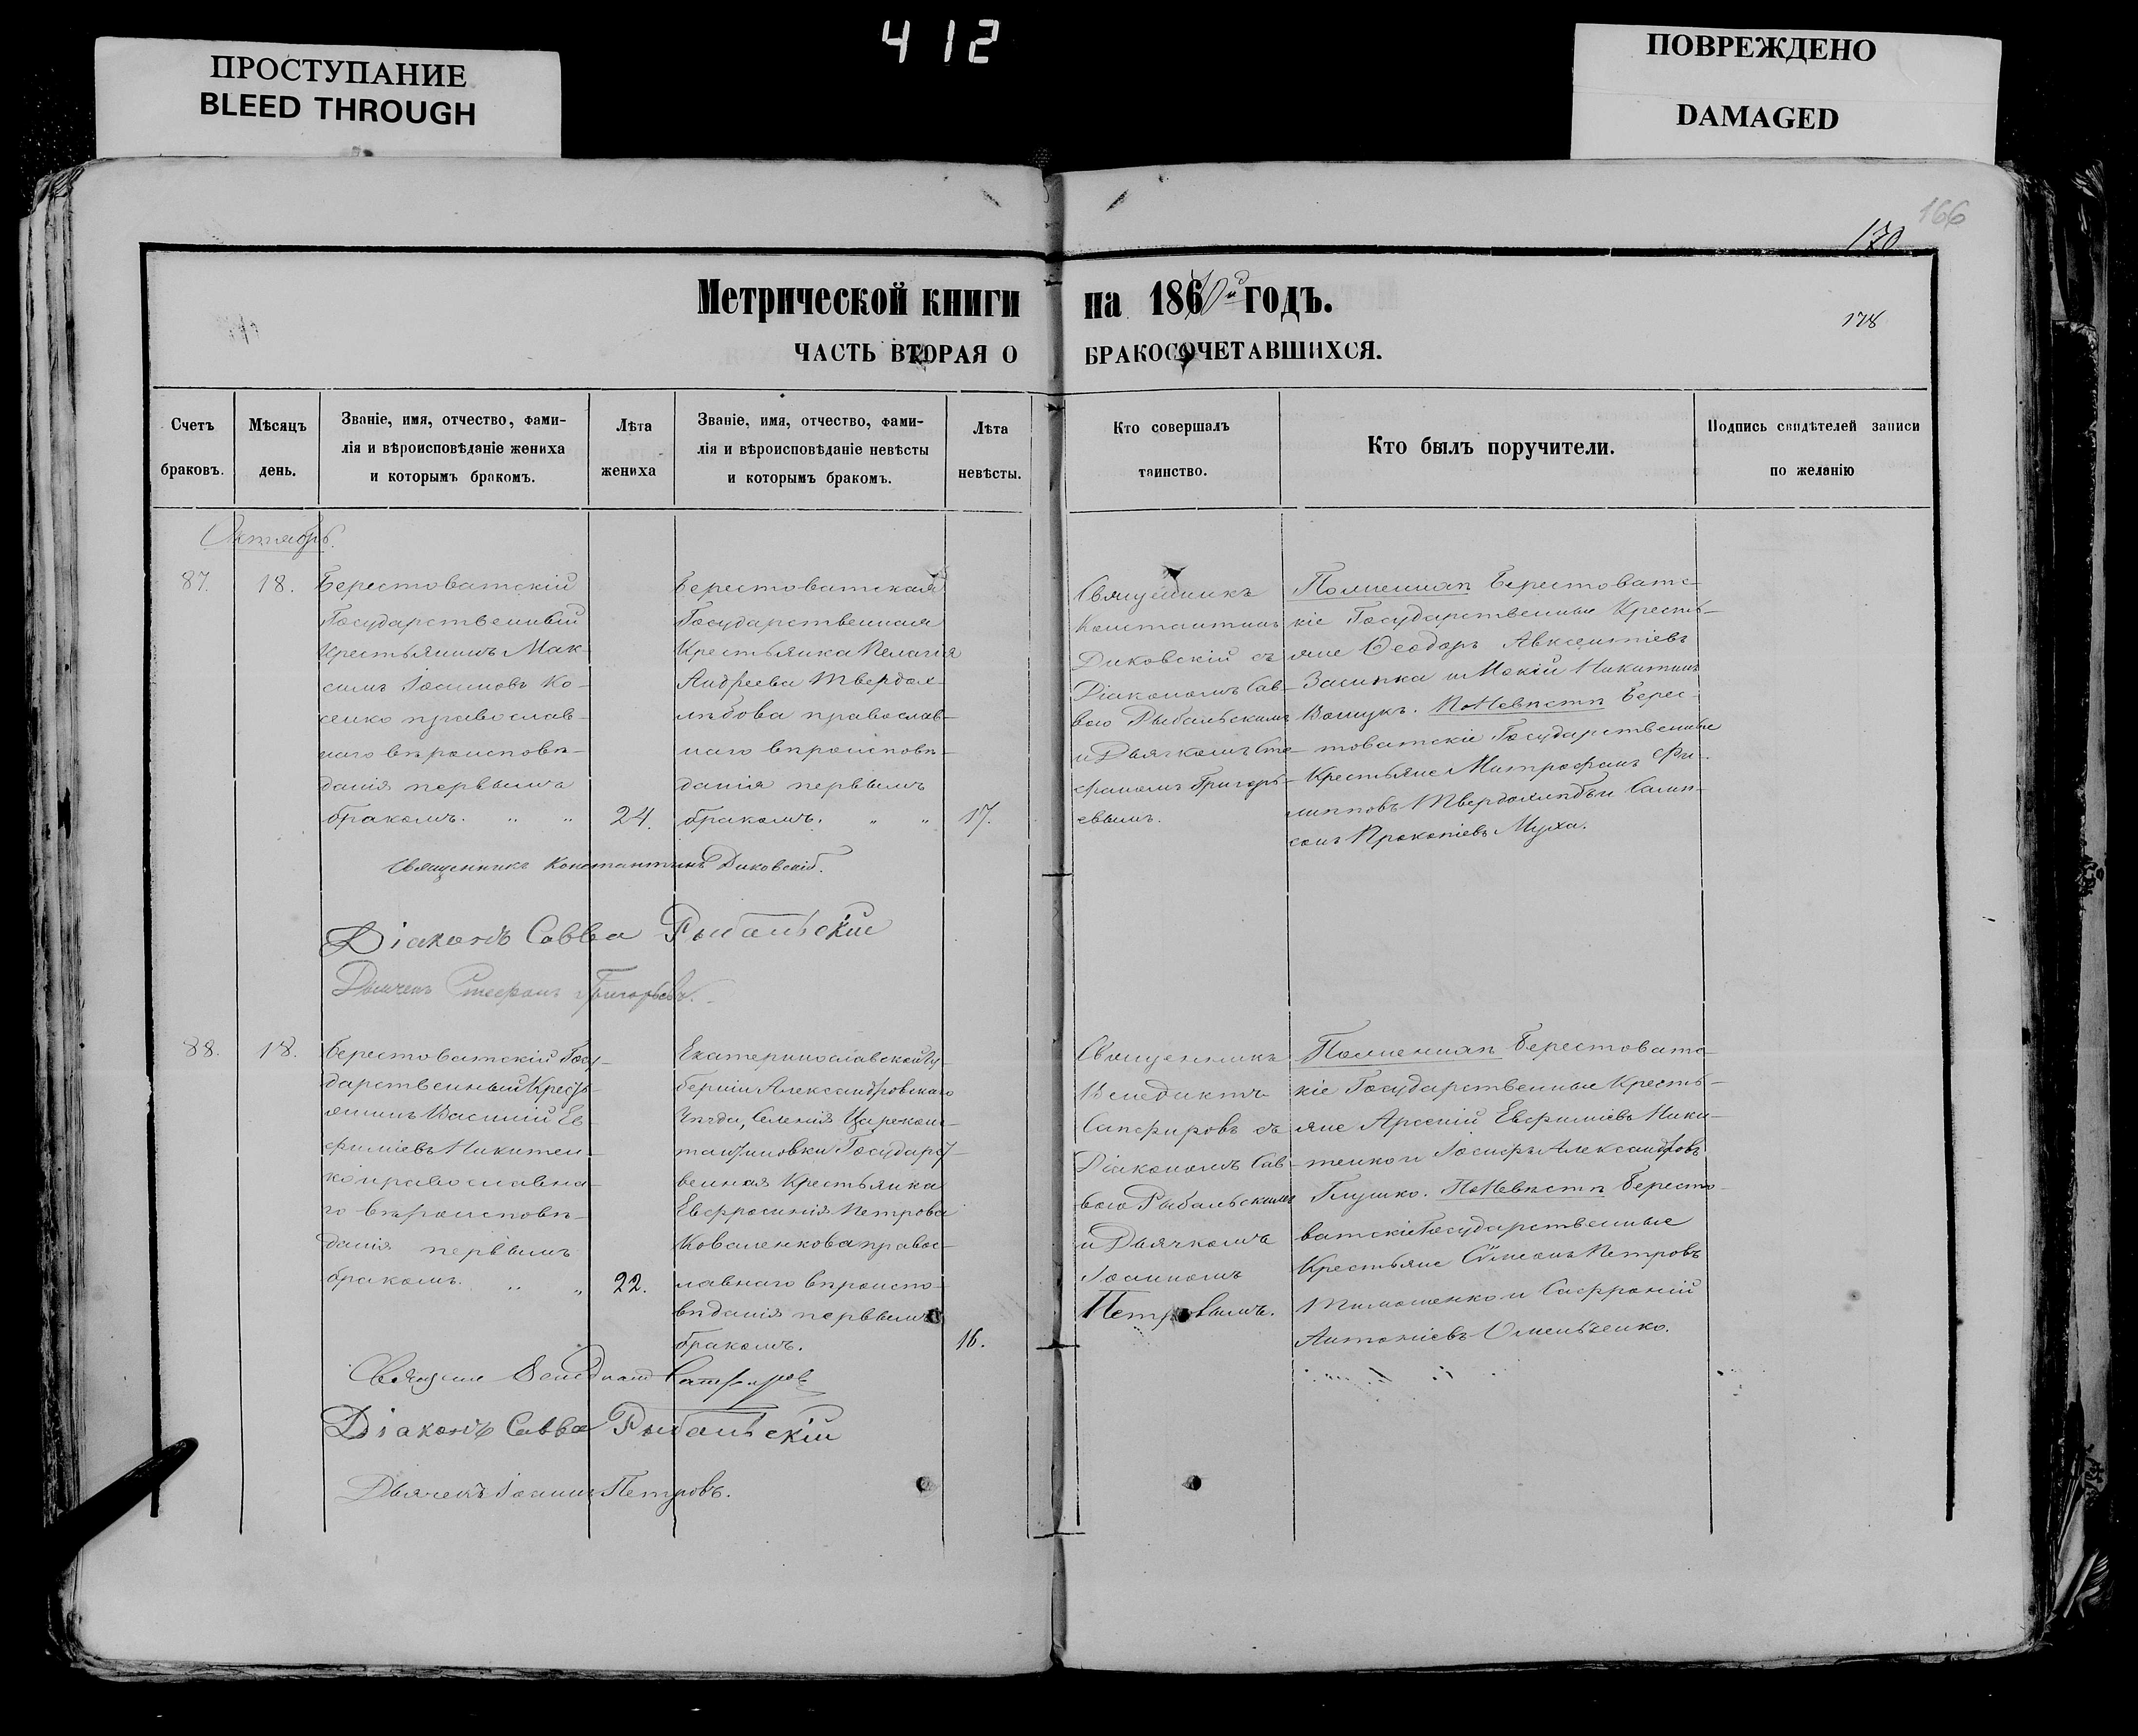 412
ПРОСТУПАНИЕ
BLEED THROUGH
ПОВРЕЖДЕНО
DAMAGED
166
170
178
Метрической книги на 1870й годъ.
ЧАСТЬ ВТОРАЯ О БРАКОСОЧЕТАВШИХСЯ.
Счетъ
браковъ.
Мѣсяцъ
день.
Званіе, имя, отчество, фами-
лія и вѣроисповѣданіе жениха
и которымъ бракомъ.
Лѣта
жениха
Званіе, имя, отчество, фами-
лія и вѣроисповѣданіе невѣсты
и которымъ бракомъ.
Лѣта
невѣсты.
Кто совершалъ
таинство.
Кто былъ поручители.
Подпись свидѣтелей записи
по желанію
Октябрь.
87.
18.
Берестоватскій
Государственный
Крестьянинъ Мак-
симъ Іоанновъ Ко-
сенко православ-
наго вѣроисповѣ-
данія первымъ
бракомъ. " "
24.
Берестоватская
Государственная
Крестьянка Пелагія
Андреева Твердох-
лѣбова православ-
наго вѣроисповѣ-
данія первымъ
бракомъ. " "
17.
Священникъ
Константинъ
Диковскій съ
Діакономъ Сав-
вою Рыбальскимъ
и Дьячкомъ Сте-
фаномъ Григорь-
евымъ.
По женихѣ Берестоватс-
кіе Государственные Кресть-
яне Ѳеодоръ Авксентіевъ
Заипка и Мокій Никитинъ
Вощукъ. По Невѣстѣ Берес-
товатскіе Государственные
Крестьяне Митрофанъ Фи-
липповъ Твердохлѣбъ и Самп-
сонъ Прокопіевъ Муха.
Священникъ Константинъ Диковскій.
Діаконъ Савва Рыбальскій
Дьячекъ Стефанъ Григорьевъ.
88.
18.
Берестоватскій Госу-
дарственный Кресть-
янинъ Василій Ев-
фиміевъ Никитен-
ко православна-
го вѣроисповѣ-
данія первымъ
бракомъ. " "
22.
Екатеринославской Гу-
берніи Александровскаго
Уѣзда, Селенія Царекон-
стантиновки Государст-
венная Крестьянка
Евфросинія Петрова
Коваленкова правос-
лавнаго вѣроиспо-
вѣданія первымъ
бракомъ.
16.
Священникъ
Венедиктъ
Сапфировъ съ
Діакономъ Сав-
вою Рыбальскимъ
и Дьячкомъ
Іоанномъ
Петровымъ.
По женихѣ Берестоватс-
кіе Государственные Кресть-
яне Арсеній Евфиміевъ Ники-
тенко и Іосифъ Александровъ
Глушко. По Невѣстѣ Бересто-
ватскіе Государственные
Крестьяне Сѵмеонъ Петровъ
Тимошенко и Сафроній
Антоніевъ Омельченко.
Священ Венедиктъ Сапфировъ
Діаконъ Савва Рыбальскій
Дьячекъ Іоаннъ Петровъ.